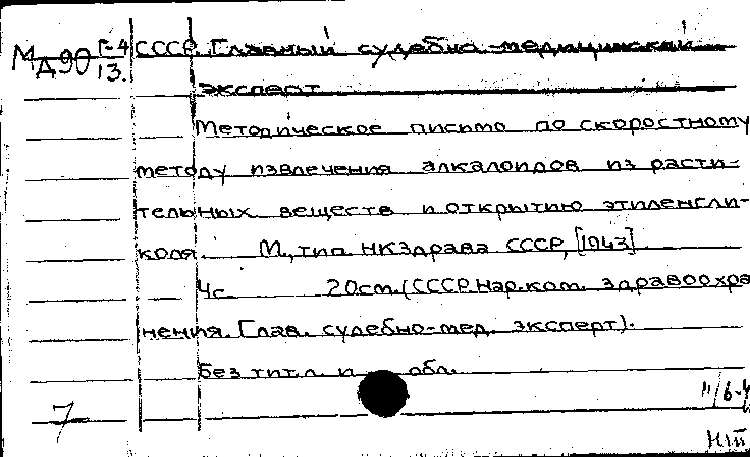 МА90 Г-4 СССР. Главный судебно-медицинский
13.
эксперт
Методическое письмо по скоростному
методу извлечения алкалоидов из расти-
тельных веществ и открытию этиленгли-
коля. М., тип. НКЗдрава СССР, [1943]
4с 20см. (СССР. Нар. ком. здравоохра
нения. Глав. судебно-мед. эксперт).
Без тит. л. и обл.
7